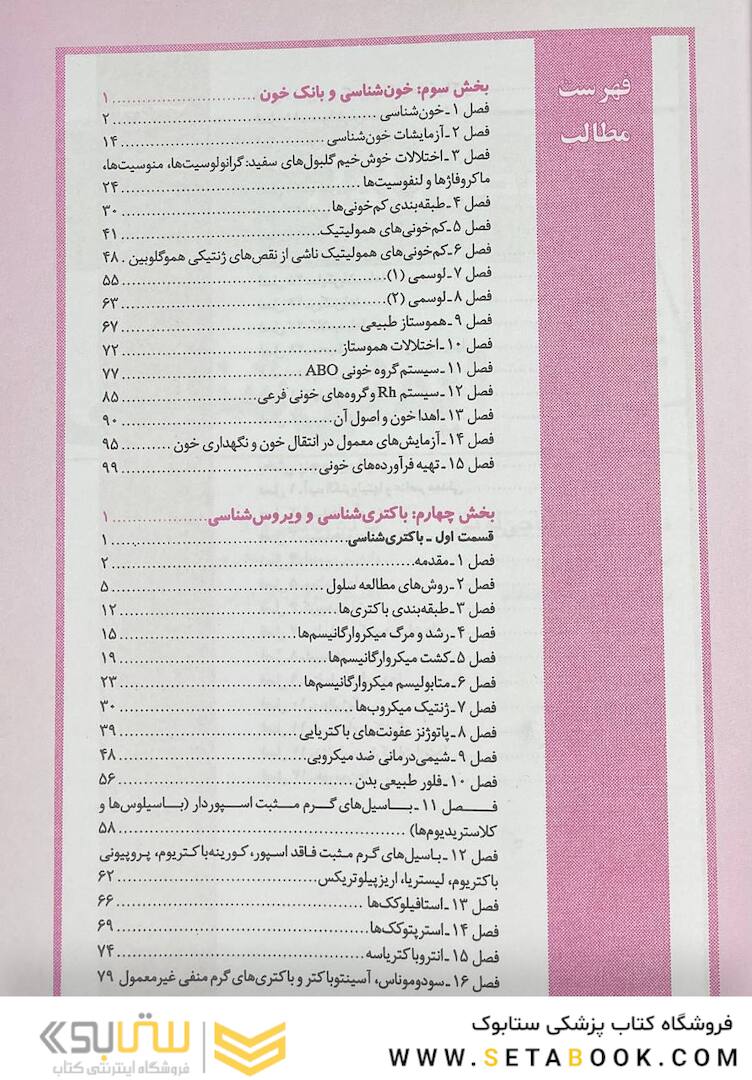 فهرست
مطالب
بخش سوم: خون‌شناسی و بانک خون ........................ ۱
فصل ۱ـ خون‌شناسی ........................ ۲
فصل ۲ـ آزمایشات خون‌شناسی ........................ ۱۴
فصل ۳ـ اختلالات خوش‌خیم گلبول‌های سفید: گرانولوسیت‌ها، منوسیت‌ها،
ماکروفاژها و لنفوسیت‌ها ........................ ۲۴
فصل ۴ـ طبقه‌بندی کم‌خونی‌ها ........................ ۳۰
فصل ۵ـ کم‌خونی‌های همولیتیک ........................ ۴۱
فصل ۶ـ کم‌خونی‌های همولیتیک ناشی از نقص‌های ژنتیکی هموگلوبین . ۴۸
فصل ۷ـ لوسمی (۱) ........................ ۵۵
فصل ۸ـ لوسمی (۲) ........................ ۶۳
فصل ۹ـ هموستاز طبیعی ........................ ۶۷
فصل ۱۰ـ اختلالات هموستاز ........................ ۷۲
فصل ۱۱ـ سیستم گروه خونی ABO ........................ ۷۷
فصل ۱۲ـ سیستم Rh و گروه‌های خونی فرعی ........................ ۸۵
فصل ۱۳ـ اهدا خون و اصول آن ........................ ۹۰
فصل ۱۴ـ آزمایش‌های معمول در انتقال خون و نگهداری خون ............ ۹۵
فصل ۱۵ـ تهیه فرآورده‌های خونی ........................ ۹۹
بخش چهارم: باکتری‌شناسی و ویروس‌شناسی ............ ۱
قسمت اول ـ باکتری‌شناسی ........................ ۱
فصل ۱ـ مقدمه ........................ ۲
فصل ۲ـ روش‌های مطالعه سلول ........................ ۵
فصل ۳ـ طبقه‌بندی باکتری‌ها ........................ ۱۲
فصل ۴ـ رشد و مرگ میکروارگانیسم‌ها ........................ ۱۵
فصل ۵ـ کشت میکروارگانیسم‌ها ........................ ۱۹
فصل ۶ـ متابولیسم میکروارگانیسم‌ها ........................ ۲۳
فصل ۷ـ ژنتیک میکروب‌ها ........................ ۳۰
فصل ۸ـ پاتوژنز عفونت‌های باکتریایی ........................ ۳۹
فصل ۹ـ شیمی‌درمانی ضد میکروبی ........................ ۴۸
فصل ۱۰ـ فلور طبیعی بدن ........................ ۵۶
فـــصل ۱۱ـ بـــاسیل‌های گـرم مـــثبت اســپوردار (بـــاسیلوس‌ها و
کلاستریدیوم‌ها) ........................ ۵۸
فصل ۱۲ـ باسیل‌های گرم مثبت فاقد اسپور، کورینه‌باکتریوم، پروپیونی
باکتریوم، لیستریا، اریزیپلوتریکس ........................ ۶۲
فصل ۱۳ـ استافیلوکک‌ها ........................ ۶۶
فصل ۱۴ـ استرپتوکک‌ها ........................ ۶۹
فصل ۱۵ـ انتروباکتریاسه ........................ ۷۴
فصل ۱۶ـ سودوموناس، آسینتوباکتر و باکتری‌های گرم منفی غیرمعمول ۷۹
فروشگاه کتاب پزشکی ستابوک
WWW.SETABOOK.COM
ستابوک
فروشگاه اینترنتی کتاب